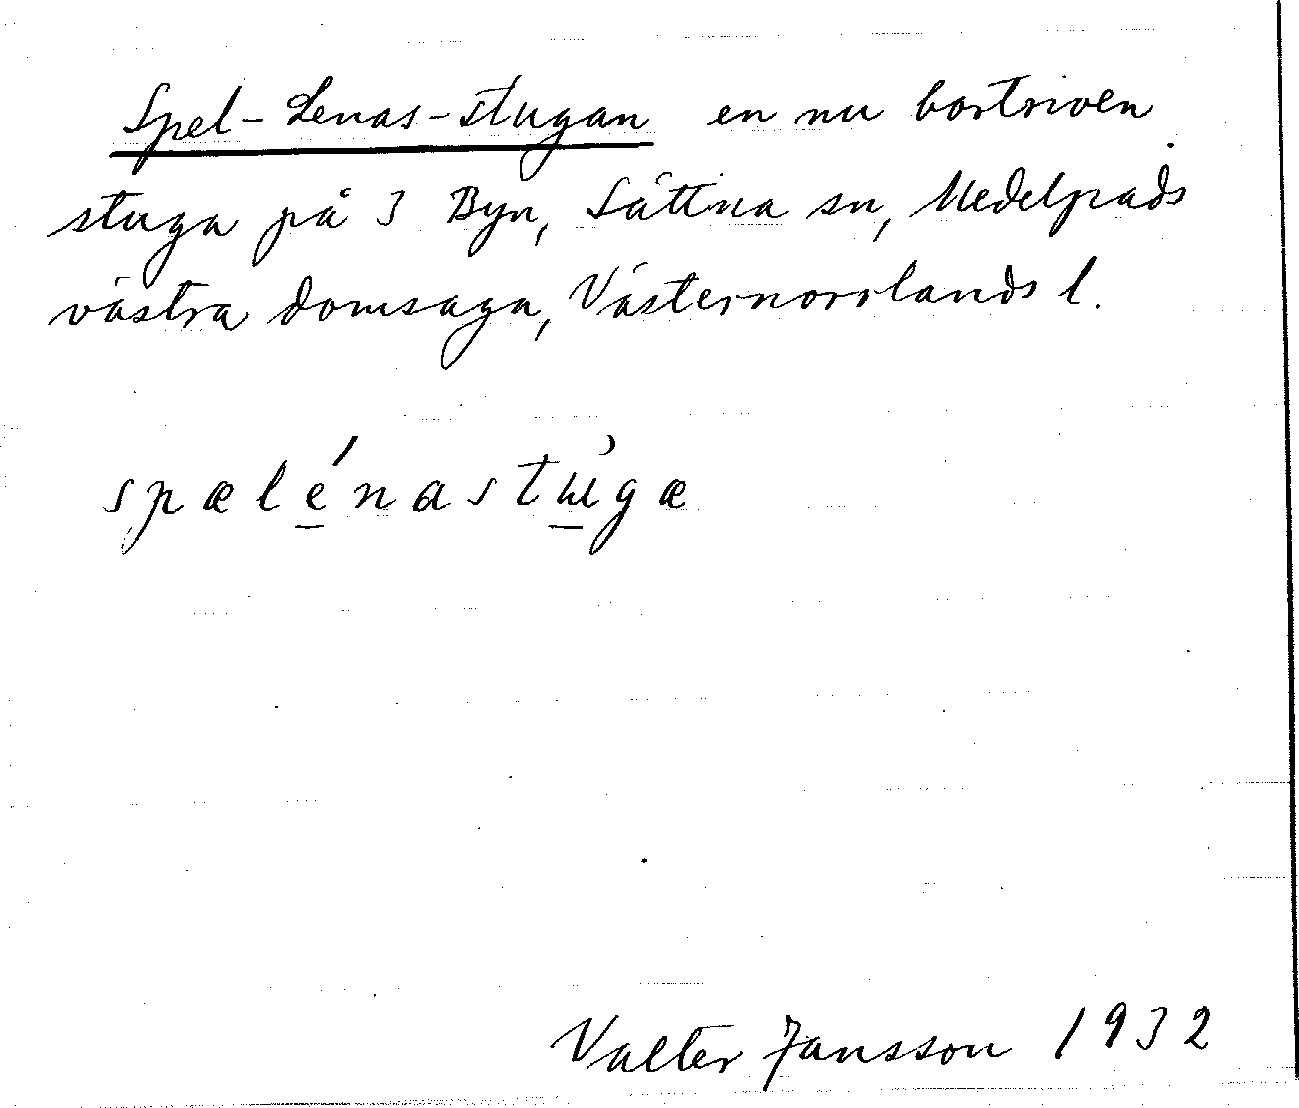 Spel-Lenas-stugan en nu bortriven
stuga på 3 Byn, Sättna sn, Medelpads
västra domsaga, Västernorrlands l.
spælénastɯ̀gæ
Valter Jansson 1932